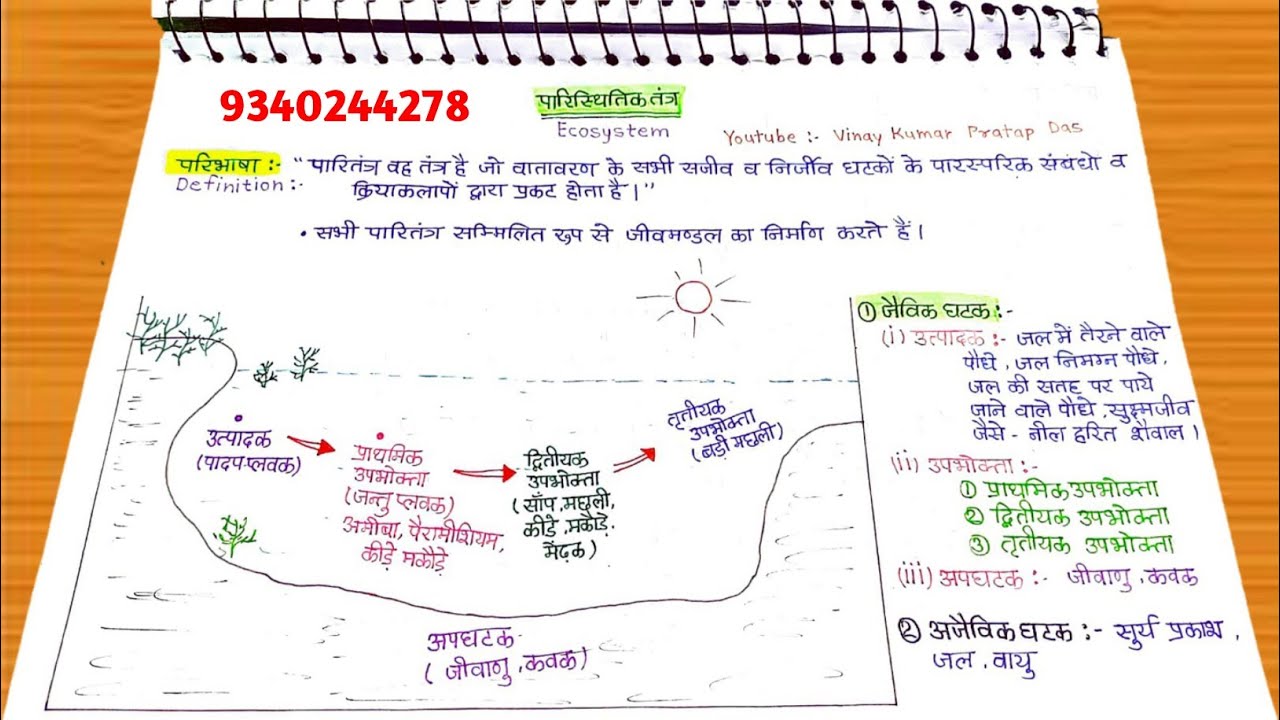 9340244278
पारिस्थितिक तंत्र
Ecosystem
Youtube :- Vinay Kumar Pratap Das
परिभाषा :- "पारितंत्र वह तंत्र है जो वातावरण के सभी सजीव व निर्जीव घटकों के पारस्परिक संबंधो व
Definition :- क्रियाकलापों द्वारा प्रकट होता है।"
• सभी पारितंत्र सम्मिलित रूप से जीवमण्डल का निर्माण करते हैं।
उत्पादक
(पादप-प्लवक)
प्राथमिक
उपभोक्ता
(जन्तु प्लवक)
अमीबा, पैरामीशियम,
कीड़े मकौड़े
द्वितीयक
उपभोक्ता
(साँप, मछली,
कीड़े, मकौड़े,
मेंढ़क)
तृतीयक
उपभोक्ता
(बड़ी मछली)
अपघटक
(जीवाणु, कवक)
① जैविक घटक :-
(i) उत्पादक :- जल में तैरने वाले
पौधे, जल निमग्न पौधे,
जल की सतह पर पाये
जाने वाले पौधे, सुक्ष्मजीव
जैसे - नील हरित शैवाल।
(ii) उपभोक्ता :-
① प्राथमिक उपभोक्ता
② द्वितीयक उपभोक्ता
③ तृतीयक उपभोक्ता
(iii) अपघटक :- जीवाणु, कवक
② अजैविक घटक :- सूर्य प्रकाश,
जल, वायु